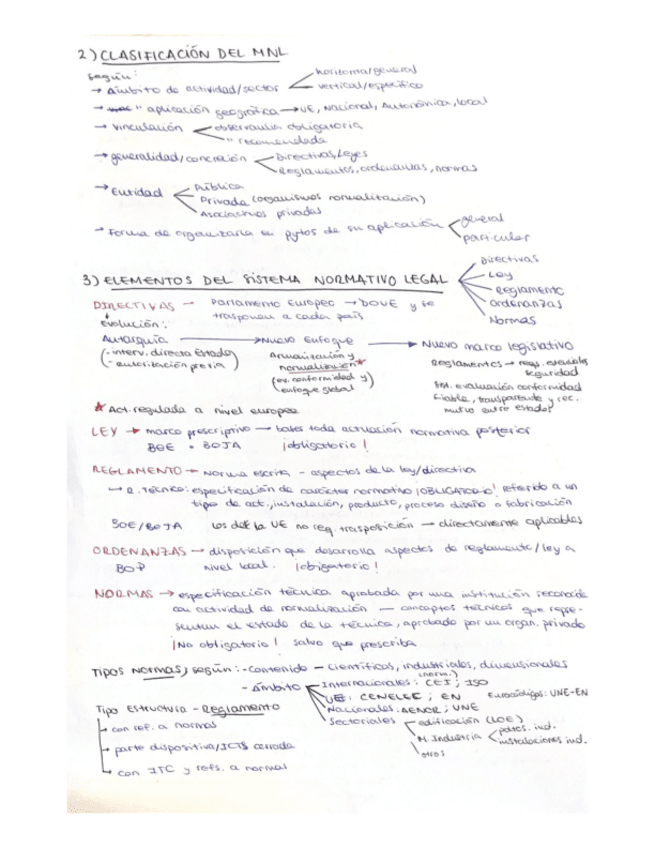 2) CLASIFICACIÓN DEL MNL
según:
→ Ámbito de actividad/sector horizontal/general
vertical/específico
→ " aplicación geográfica → UE, Nacional, Autonómica, local
→ Vinculación observancia obligatoria
" recomendada
→ generalidad/concreción Directivas, Leyes
Reglamentos, ordenanzas, normas
→ Entidad Pública
Privada (organismos normalización)
Asociaciones privadas
→ Forma de organizarla en pytos de su aplicación general
particular
3) ELEMENTOS DEL SISTEMA NORMATIVO LEGAL Directivas
Ley
Reglamento
Ordenanzas
Normas
DIRECTIVAS → Parlamento Europeo → DOUE y se
trasponen a cada país
Evolución:
Autarquía → Nuevo Enfoque → Nuevo marco legislativo
(- interv. directa Estado Armonización y Reglamentos → reqs. esenciales
- autorización previa) normalización* seguridad
(ev. conformidad y evaluación conformidad
enfoque global) fiable, transparente y rec.
mutuo entre estados
* Act. regulada a nivel europeo
LEY → marco prescriptivo → bases toda actuación normativa posterior
BOE o BOJA ¡obligatorio!
REGLAMENTO → Norma escrita - aspectos de la ley/directiva
→ R. Técnico: especificación de carácter normativo ¡OBLIGATORIO! referido a un
tipo de act., instalación, producto, proceso diseño o fabricación
BOE/BOJA Los de la UE no req. trasposición → directamente aplicables
ORDENANZAS → disposición que desarrolla aspectos de reglamento/ley a
BOP nivel local. ¡obligatorio!
NORMAS → especificación técnica aprobada por una institución reconocida
con actividad de normalización — conceptos técnicos que repre-
sentan el estado de la técnica, aprobado por un organ. privado
¡No obligatorio! salvo que prescriba
TIPOS NORMAS, según: - Contenido - Científicas, industriales, dimensionales
- Ámbito Internacionales: CEI; ISO
UE: CENELEC; EN Eurocódigos: UNE-EN
Tipo Estructura - Reglamento Nacionales: AENOR; UNE
→ con ref. a normas Sectoriales edificación (LOE)
M. Industria pdtos. ind.
instalaciones ind.
→ parte dispositiva/ITCs cerrada otros
→ con ITC y refs. a normas